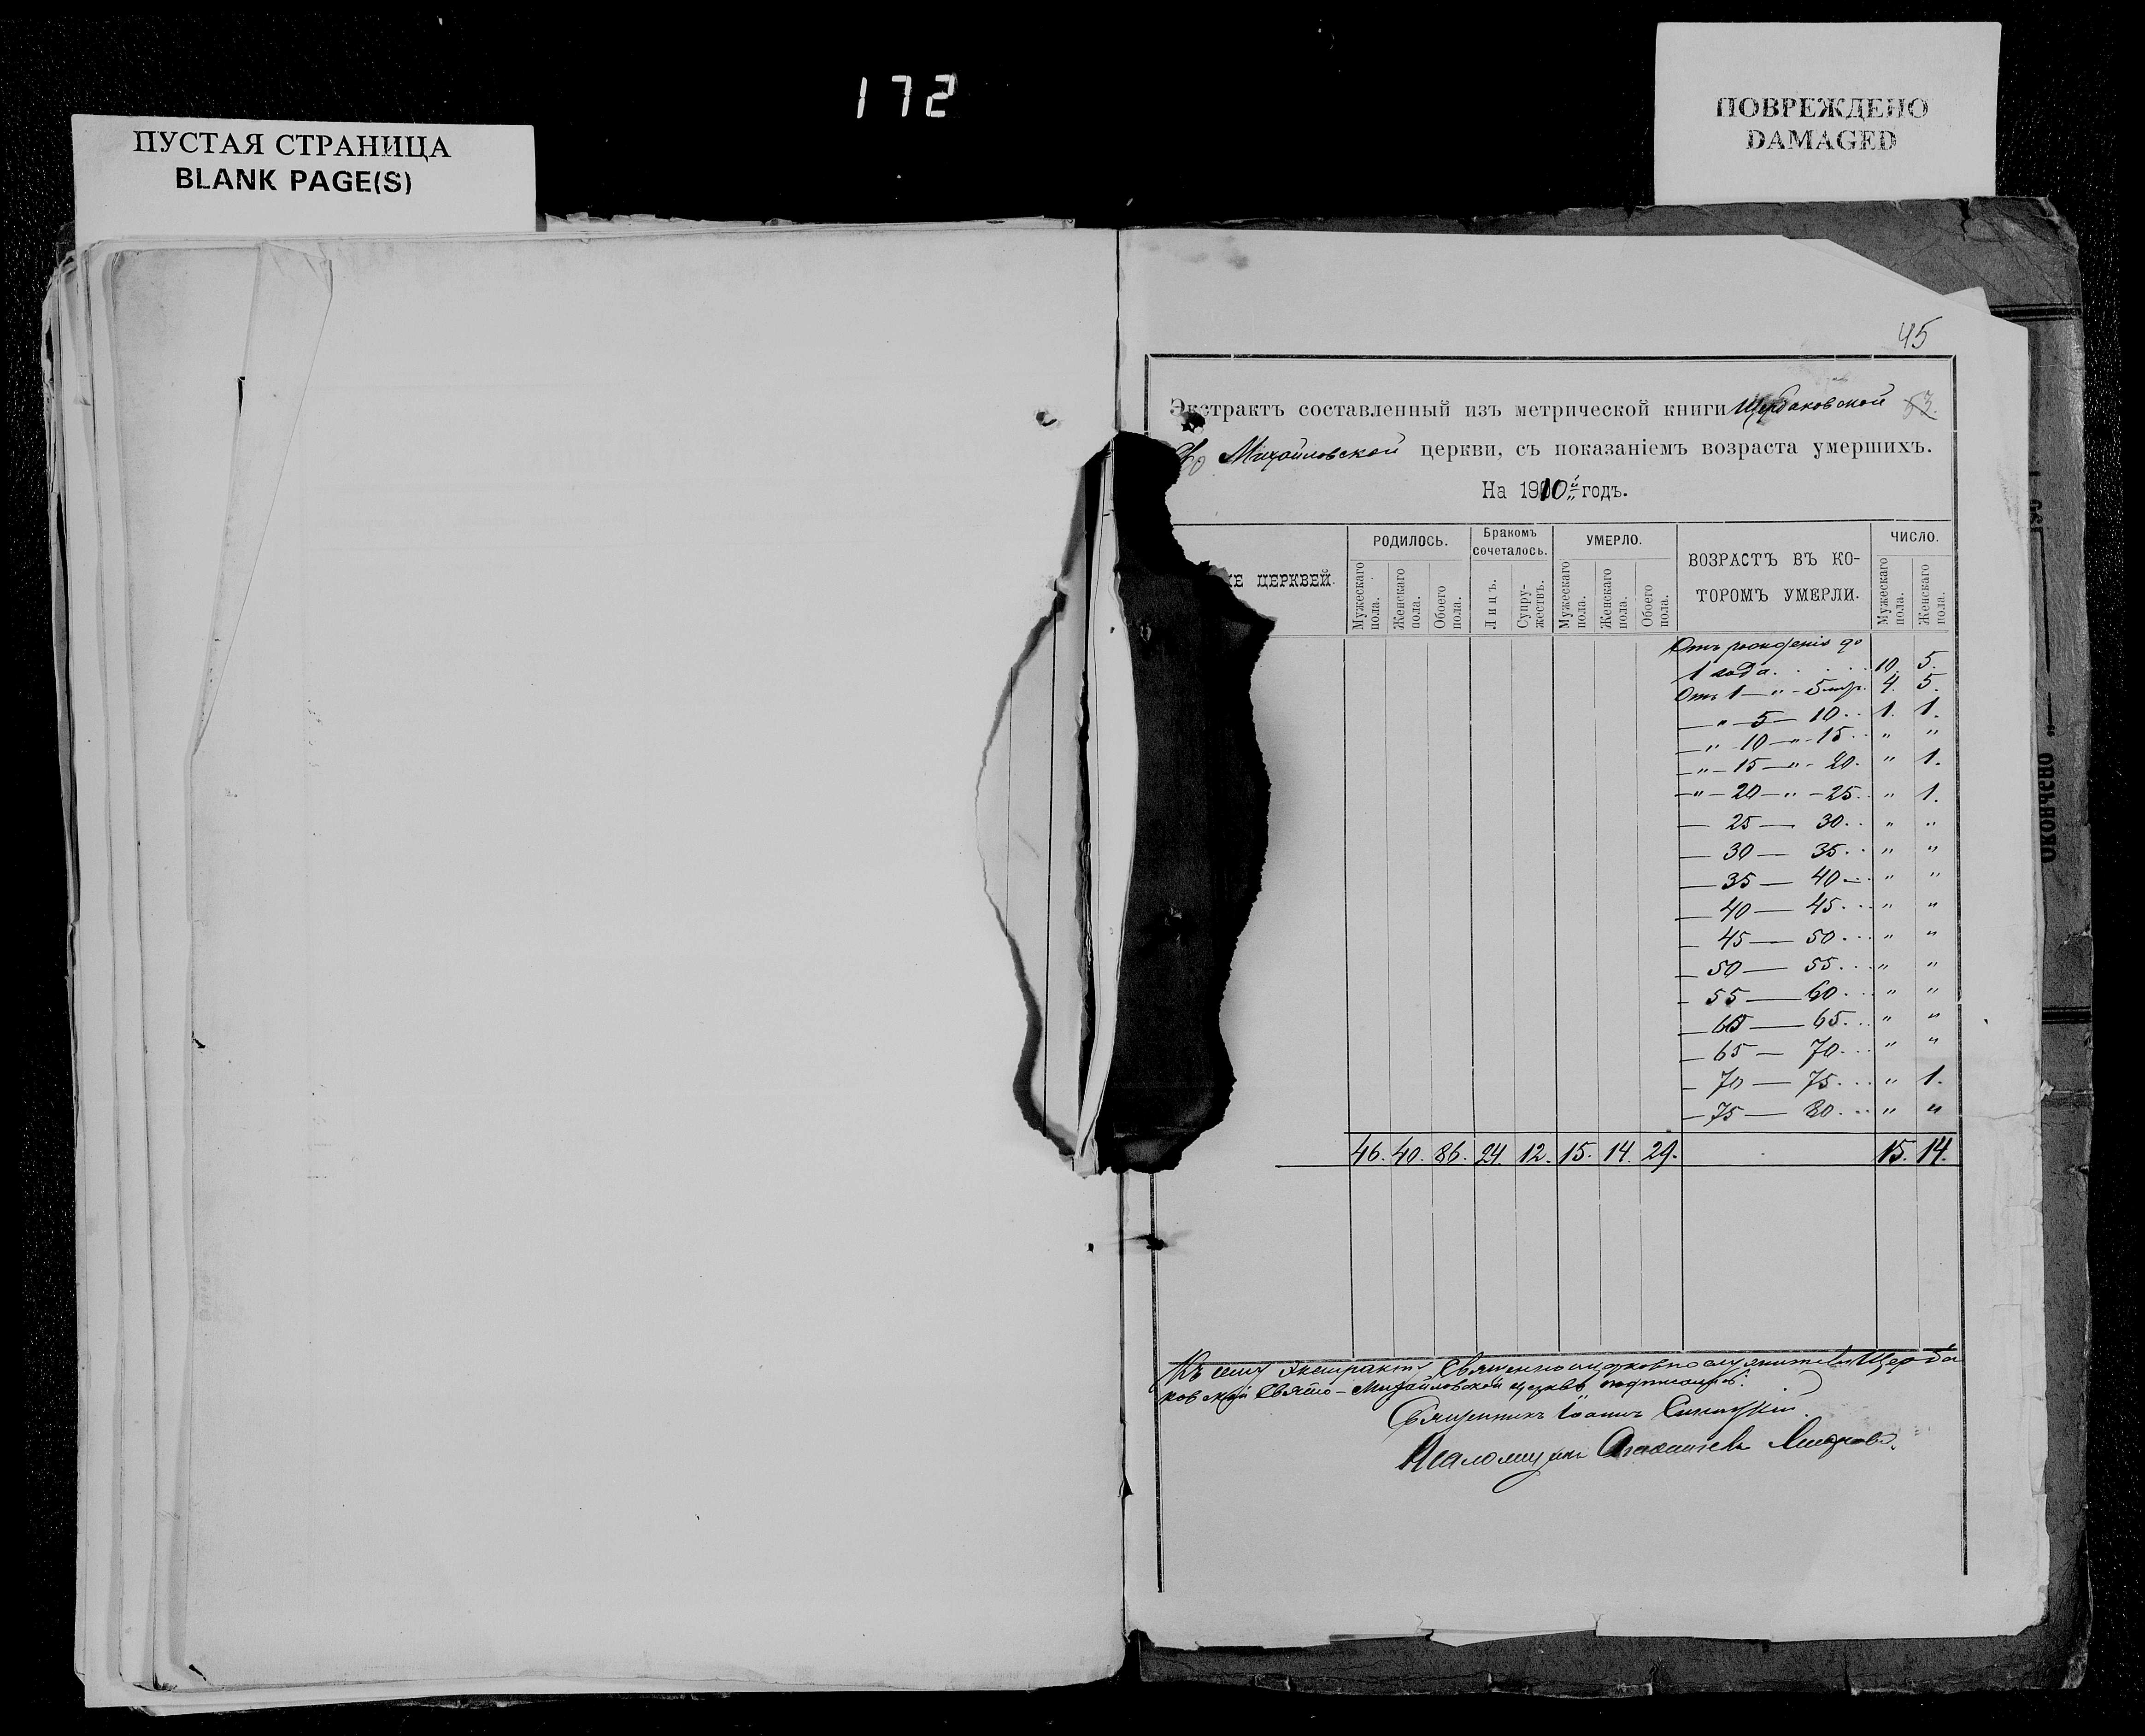 172
ПУСТАЯ СТРАНИЦА
BLANK PAGE(S)
ПОВРЕЖДЕНО
DAMAGED
45
Экстрактъ составленный изъ метрической книги Щербаковской
Михайловской церкви, съ показаніемъ возраста умершихъ.
На 1910й годъ.
ІЕ ЦЕРКВЕЙ.
РОДИЛОСЬ.
Мужескаго пола.
Женскаго пола.
Обоего пола.
Бракомъ сочеталось.
Лицъ.
Супружествъ.
УМЕРЛО.
Мужескаго пола.
Женскаго пола.
Обоего пола.
ВОЗРАСТЪ ВЪ КО-
ТОРОМЪ УМЕРЛИ.
ЧИСЛО.
Мужескаго пола.
Женскаго пола.
Отъ рожденія до
1 года. . . . . 10. 5.
Отъ 1 — " — 5 4. 5.
— " — 5 — 10 . . 1. 1.
— " — 10 — " — 15 . . " "
— " — 15 — " — 20 . " 1.
— " — 20 — " — 25 . . " 1.
— 25 — 30 . . " "
— 30 — 35 . . " "
— 35 — 40 — . . " "
— 40 — 45 . . . " "
— 45 — 50 . . . " "
— 50 — 55 . . . " "
— 55 — 60 . . . " "
— 60 — 65 . . . " "
— 65 — 70 . . . " "
— 70 — 75 . . . " 1.
— 75 — 80 . . . " "
46. 40. 86. 24. 12. 15. 14. 29. 15. 14.
Къ сему экстракту Священноцерковнослужители Щерба
ковской Свято-Михайловской церкви подписались:
Священникъ Іоаннъ
Псаломщикъ
Окончено